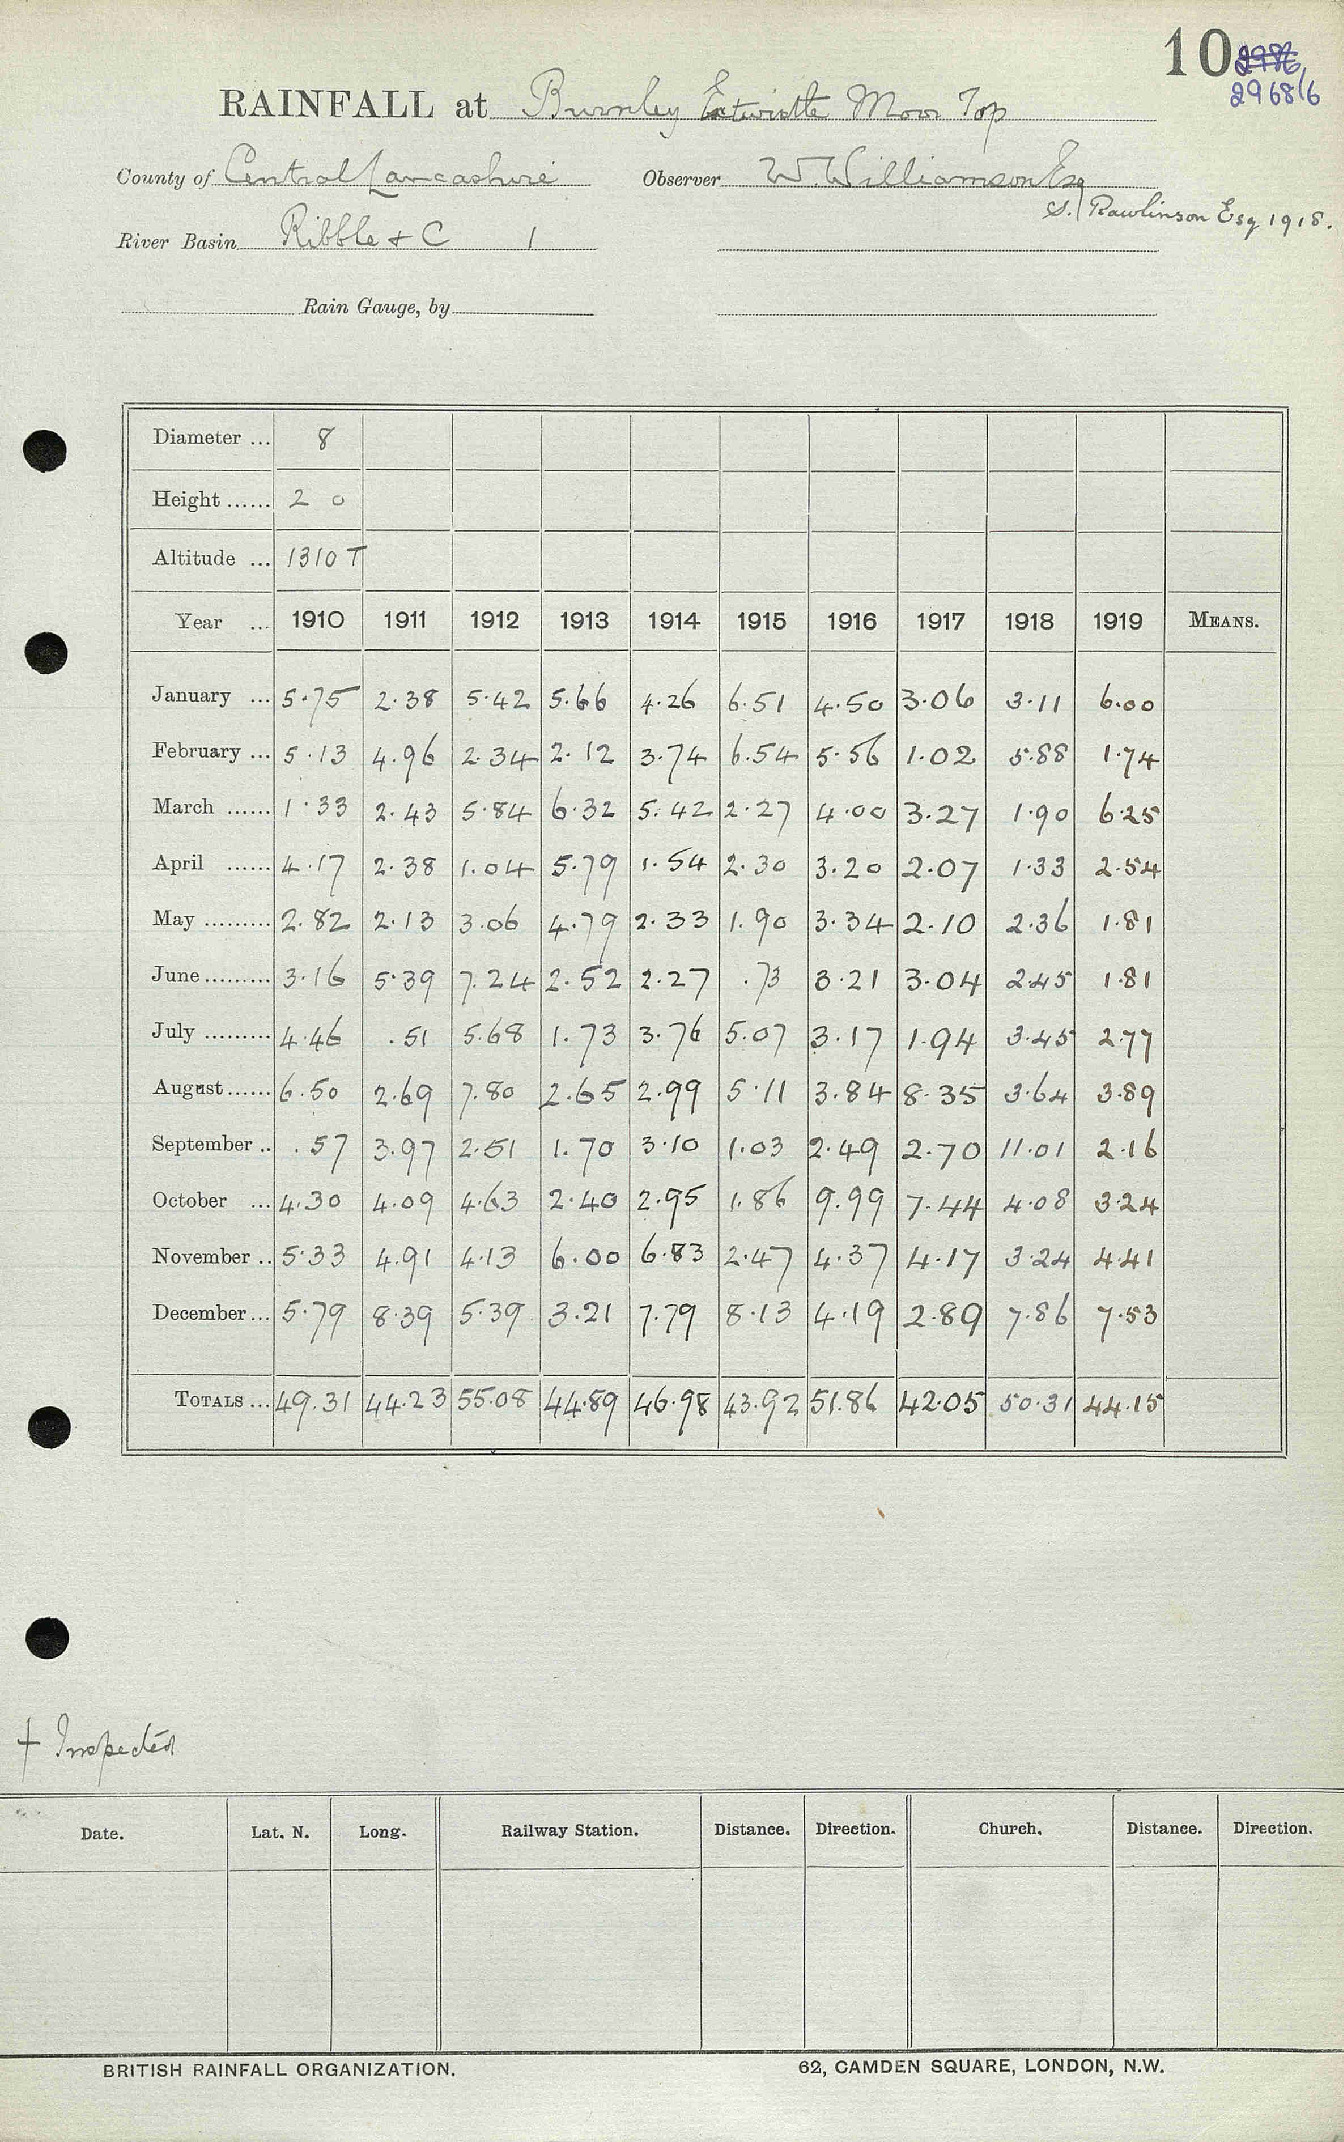 10 2986/
29686
RAINFALL at Burnley Extwistle Moor Top
County of Central Lancashire Observer W. Williamson Esq
S. Rawlinson Esq 1918.
River Basin Ribble + C 1
Rain Gauge, by
Diameter ... 8
Height ...... 2 0
Altitude ... 1310 T
Year ... 1910 1911 1912 1913 1914 1915 1916 1917 1918 1919 MEANS.
January ... 5.75 2.38 5.42 5.66 4.26 6.51 4.50 3.06 3.11 6.00
February ... 5.13 4.96 2.34 2.12 3.74 6.54 5.56 1.02 5.88 1.74
March ...... 1.33 2.43 5.84 6.32 5.42 2.27 4.00 3.27 1.90 6.25
April ...... 4.17 2.38 1.04 5.79 1.54 2.30 3.20 2.07 1.33 2.54
May ......... 2.82 2.13 3.06 4.79 2.33 1.90 3.34 2.10 2.36 1.81
June ......... 3.16 5.39 7.24 2.52 2.27 .73 3.21 3.04 2.45 1.81
July ......... 4.46 .51 5.68 1.73 3.76 5.07 3.17 1.94 3.45 2.77
August ...... 6.50 2.69 7.80 2.65 2.99 5.11 3.84 8.35 3.64 3.89
September .. .57 3.97 2.51 1.70 3.10 1.03 2.49 2.70 11.01 2.16
October ... 4.30 4.09 4.63 2.40 2.95 1.86 9.99 7.44 4.08 3.24
November .. 5.33 4.91 4.13 6.00 6.83 2.47 4.37 4.17 3.24 4.41
December ... 5.79 8.39 5.39 3.21 7.79 8.13 4.19 2.89 7.86 7.53
TOTALS ... 49.31 44.23 55.08 44.89 46.98 43.92 51.86 42.05 50.31 44.15
+ Inspected
Date. Lat. N. Long. Railway Station. Distance. Direction. Church. Distance. Direction.
BRITISH RAINFALL ORGANIZATION. 62, CAMDEN SQUARE, LONDON, N.W.